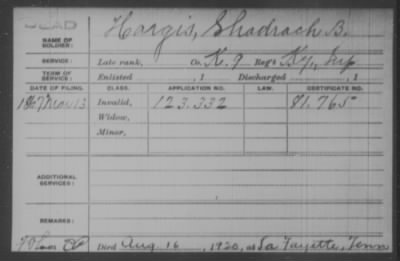 DEAD
NAME OF SOLDIER: Hargis, Shadrach B.
SERVICE: Late rank, Co. K. 9 Reg't Ky, Inf
TERM OF SERVICE: Enlisted , 1 Discharged , 1
DATE OF FILING. CLASS. APPLICATION NO. LAW. CERTIFICATE NO.
1867 Mar 13 Invalid, 123.332 81.765
Widow,
Minor,
ADDITIONAL SERVICES:
REMARKS:
Died Aug. 16, 1920, at La Fayette, Tenn